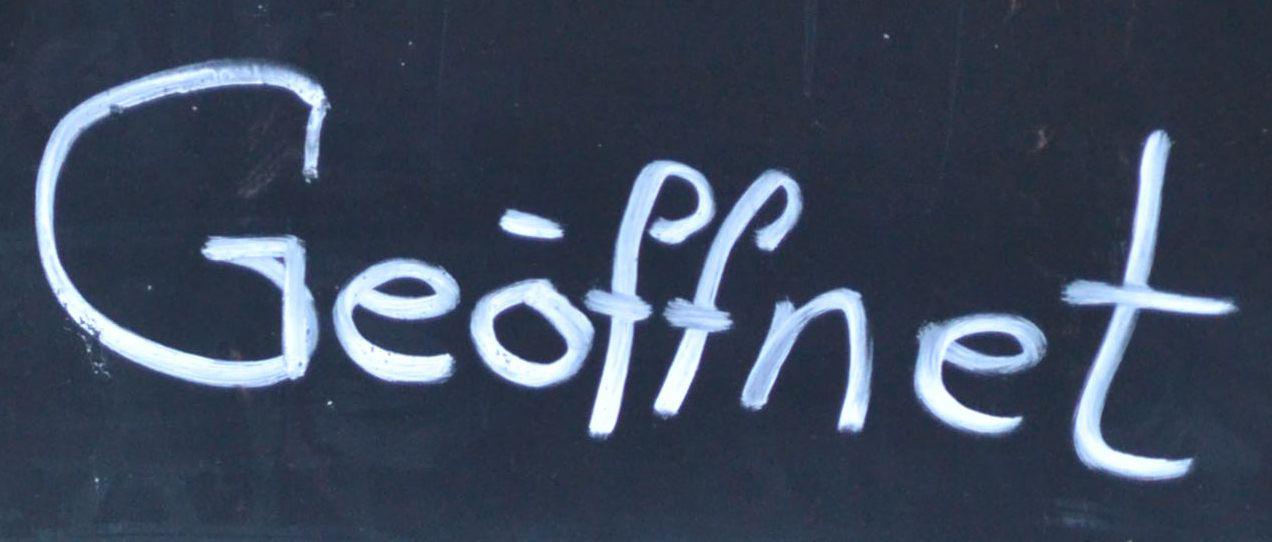 Geöffnet